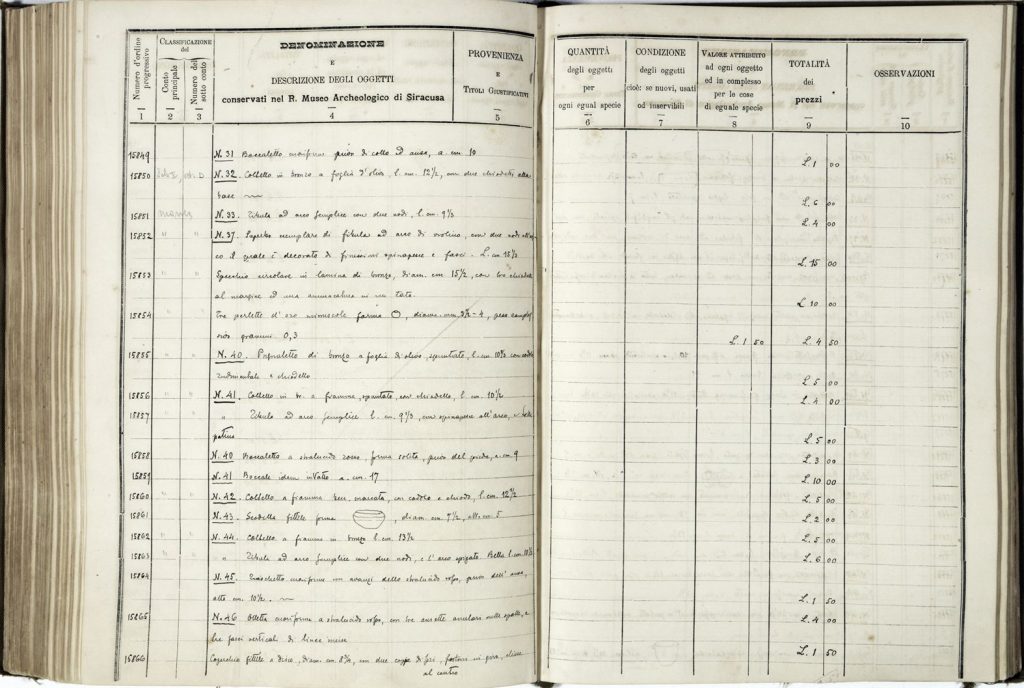 Numero d'ordine progressivo
1
CLASSIFICAZIONE
del
Conto principale
2
Numero del sotto conto
3
DENOMINAZIONE
E
DESCRIZIONE DEGLI OGGETTI
conservati nel R. Museo Archeologico di Siracusa
4
PROVENIENZA
E
TITOLI GIUSTIFICATIVI
5
15849 N. 31 Boccaletto cuoriforme privo di collo ed ansa, a. cm 10
15850 N. 32. Coltello in bronzo a foglia d'olivo, l. cm. 12½, con due chiodetti alla
base
15851 N. 33. Fibula ad arco semplice con due nodi l. cm. 9⅓
15852 " " N. 37. Superbo esemplare di fibula ad arco di violino, con due nodi all'ar-
co il quale è decorato di finissimi spinapesce e fasci. L. cm 15⅓
15853 " " Specchio circolare in lamina di bronzo, diam. cm 15½, con tre chiodetti
al margine ed una ammaccatura in un lato.
15854 " " Tre perlette d'oro minuscole forma O, diam. mm. 3½-4, peso
grammi 0,3
15855 " " N. 40. Pugnaletto di bronzo a foglia di olivo, spuntato, l. cm. 10⅔ con
rudimentale e chiodetto
15856 " " N. 41. Coltello in br. a fiamma, spuntato, con chiodetto, l. cm. 10½
15857 " " " Fibula ad arco semplice l. cm. 9⅓, con spinapesce all'arco, e bella
patina
15858 N. 40 Boccaletto a stralucido rosso, forma solita, privo del piede, a. cm 9
15859 N. 41 Boccale idem intatto a. cm. 17
15860 " " N. 42. Coltello a fiamma, con codolo e chiodo, l. cm. 12½
15861 " " N. 43. Scodella fittile forma , diam. cm 7½, alt. cm. 5
15862 " " N. 44. Coltello a fiamma in bronzo l. cm. 13½
15863 " " " Fibula ad arco semplice con due nodi, e l'arco spigato. Bella l. cm.
15864 N. 45. Fiaschetto cuoriforme con avanzi dello stralucido rosso, privo dell'ansa,
alto cm. 10½.
15865 N. 46 Olletta cuoriforme a stralucido rosso, con tre ansette anulari sulle spalle, e
tre fasci verticali di linee incise
15866 Coperchio fittile a disco, diam. cm 8⅔, con due coppie di fori,
al centro
QUANTITÀ
degli oggetti
per
ogni egual specie
6
CONDIZIONE
degli oggetti
cioè: se nuovi, usati
od inservibili
7
VALORE ATTRIBUITO
ad ogni oggetto
ed in complesso
per le cose
di eguale specie
8
TOTALITÀ
dei
prezzi
9
OSSERVAZIONI
10
L. 1 00
L. 6 00
L. 4 00
L. 15 00
L. 10 00
L. 1 50 L. 4 50
L. 5 00
L. 4 00
L. 5 00
L. 3 00
L. 10 00
L. 5 00
L. 2 00
L. 5 00
L. 6 00
L. 1 50
L. 4 00
L. 1 50